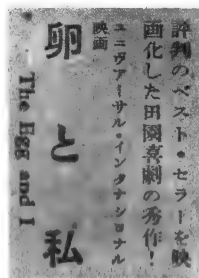 評判のベスト・セラーを映
画化した田園喜劇の秀作！
ユニヴァーサル・インタナショナル
映画
卵と私
The Egg and I